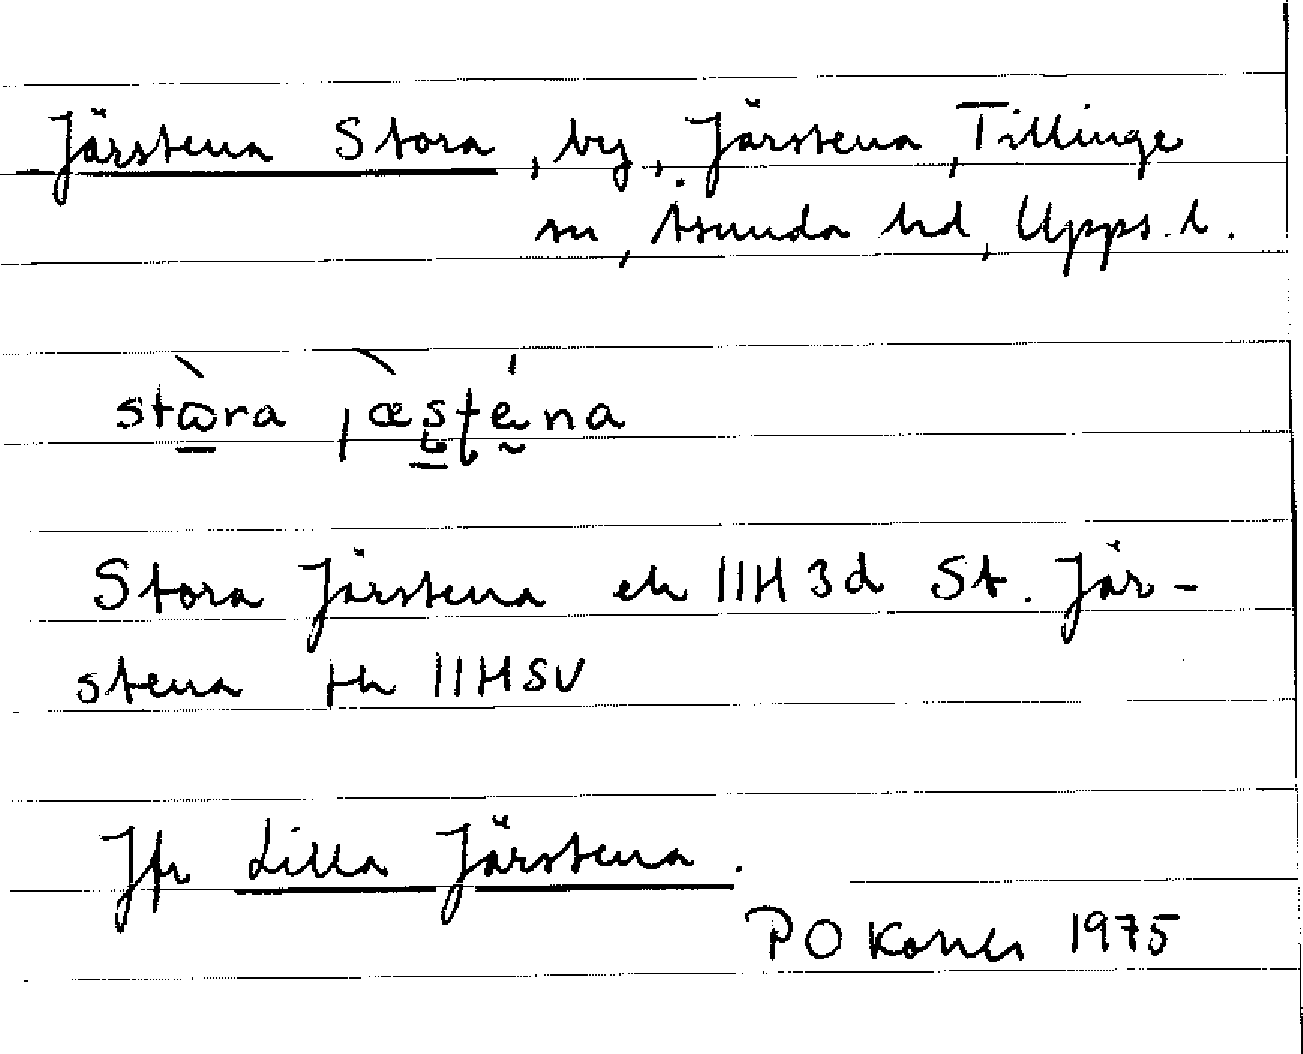 Järstena Stora, by, Järstena, Tillinge
sn, Åsunda hd, Upps. l.
stòra jæ̀sténa
Stora Järstena ek 11H 3d St. Jär-
stena tk 11HSV
Jfr Lilla Järstena.
P O 1975